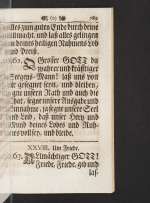 ( o )
alles zum guten Ende durch deine
Allmacht, und laß alles gelingen
zu deines heiligen Nahmens Lob
und Preiß.
362. O Großer GOTT du
wahrer und kräfftiger
Seegens-Mann! laß uns von
dir gesegnet seyn, und bleiben,
segne unsern Rath und auch die
That, segne unsere Ausgabe und
Einnahme, ja segne unsere Seel
und Leib, daß unser Hertz und
Mund deines Lobes und Ruh-
mes voll sey, und bleibe.
XXVIII. Um Friede.
363. Allmächtiger GOTT!
Friede, Friede, gib und
laß-